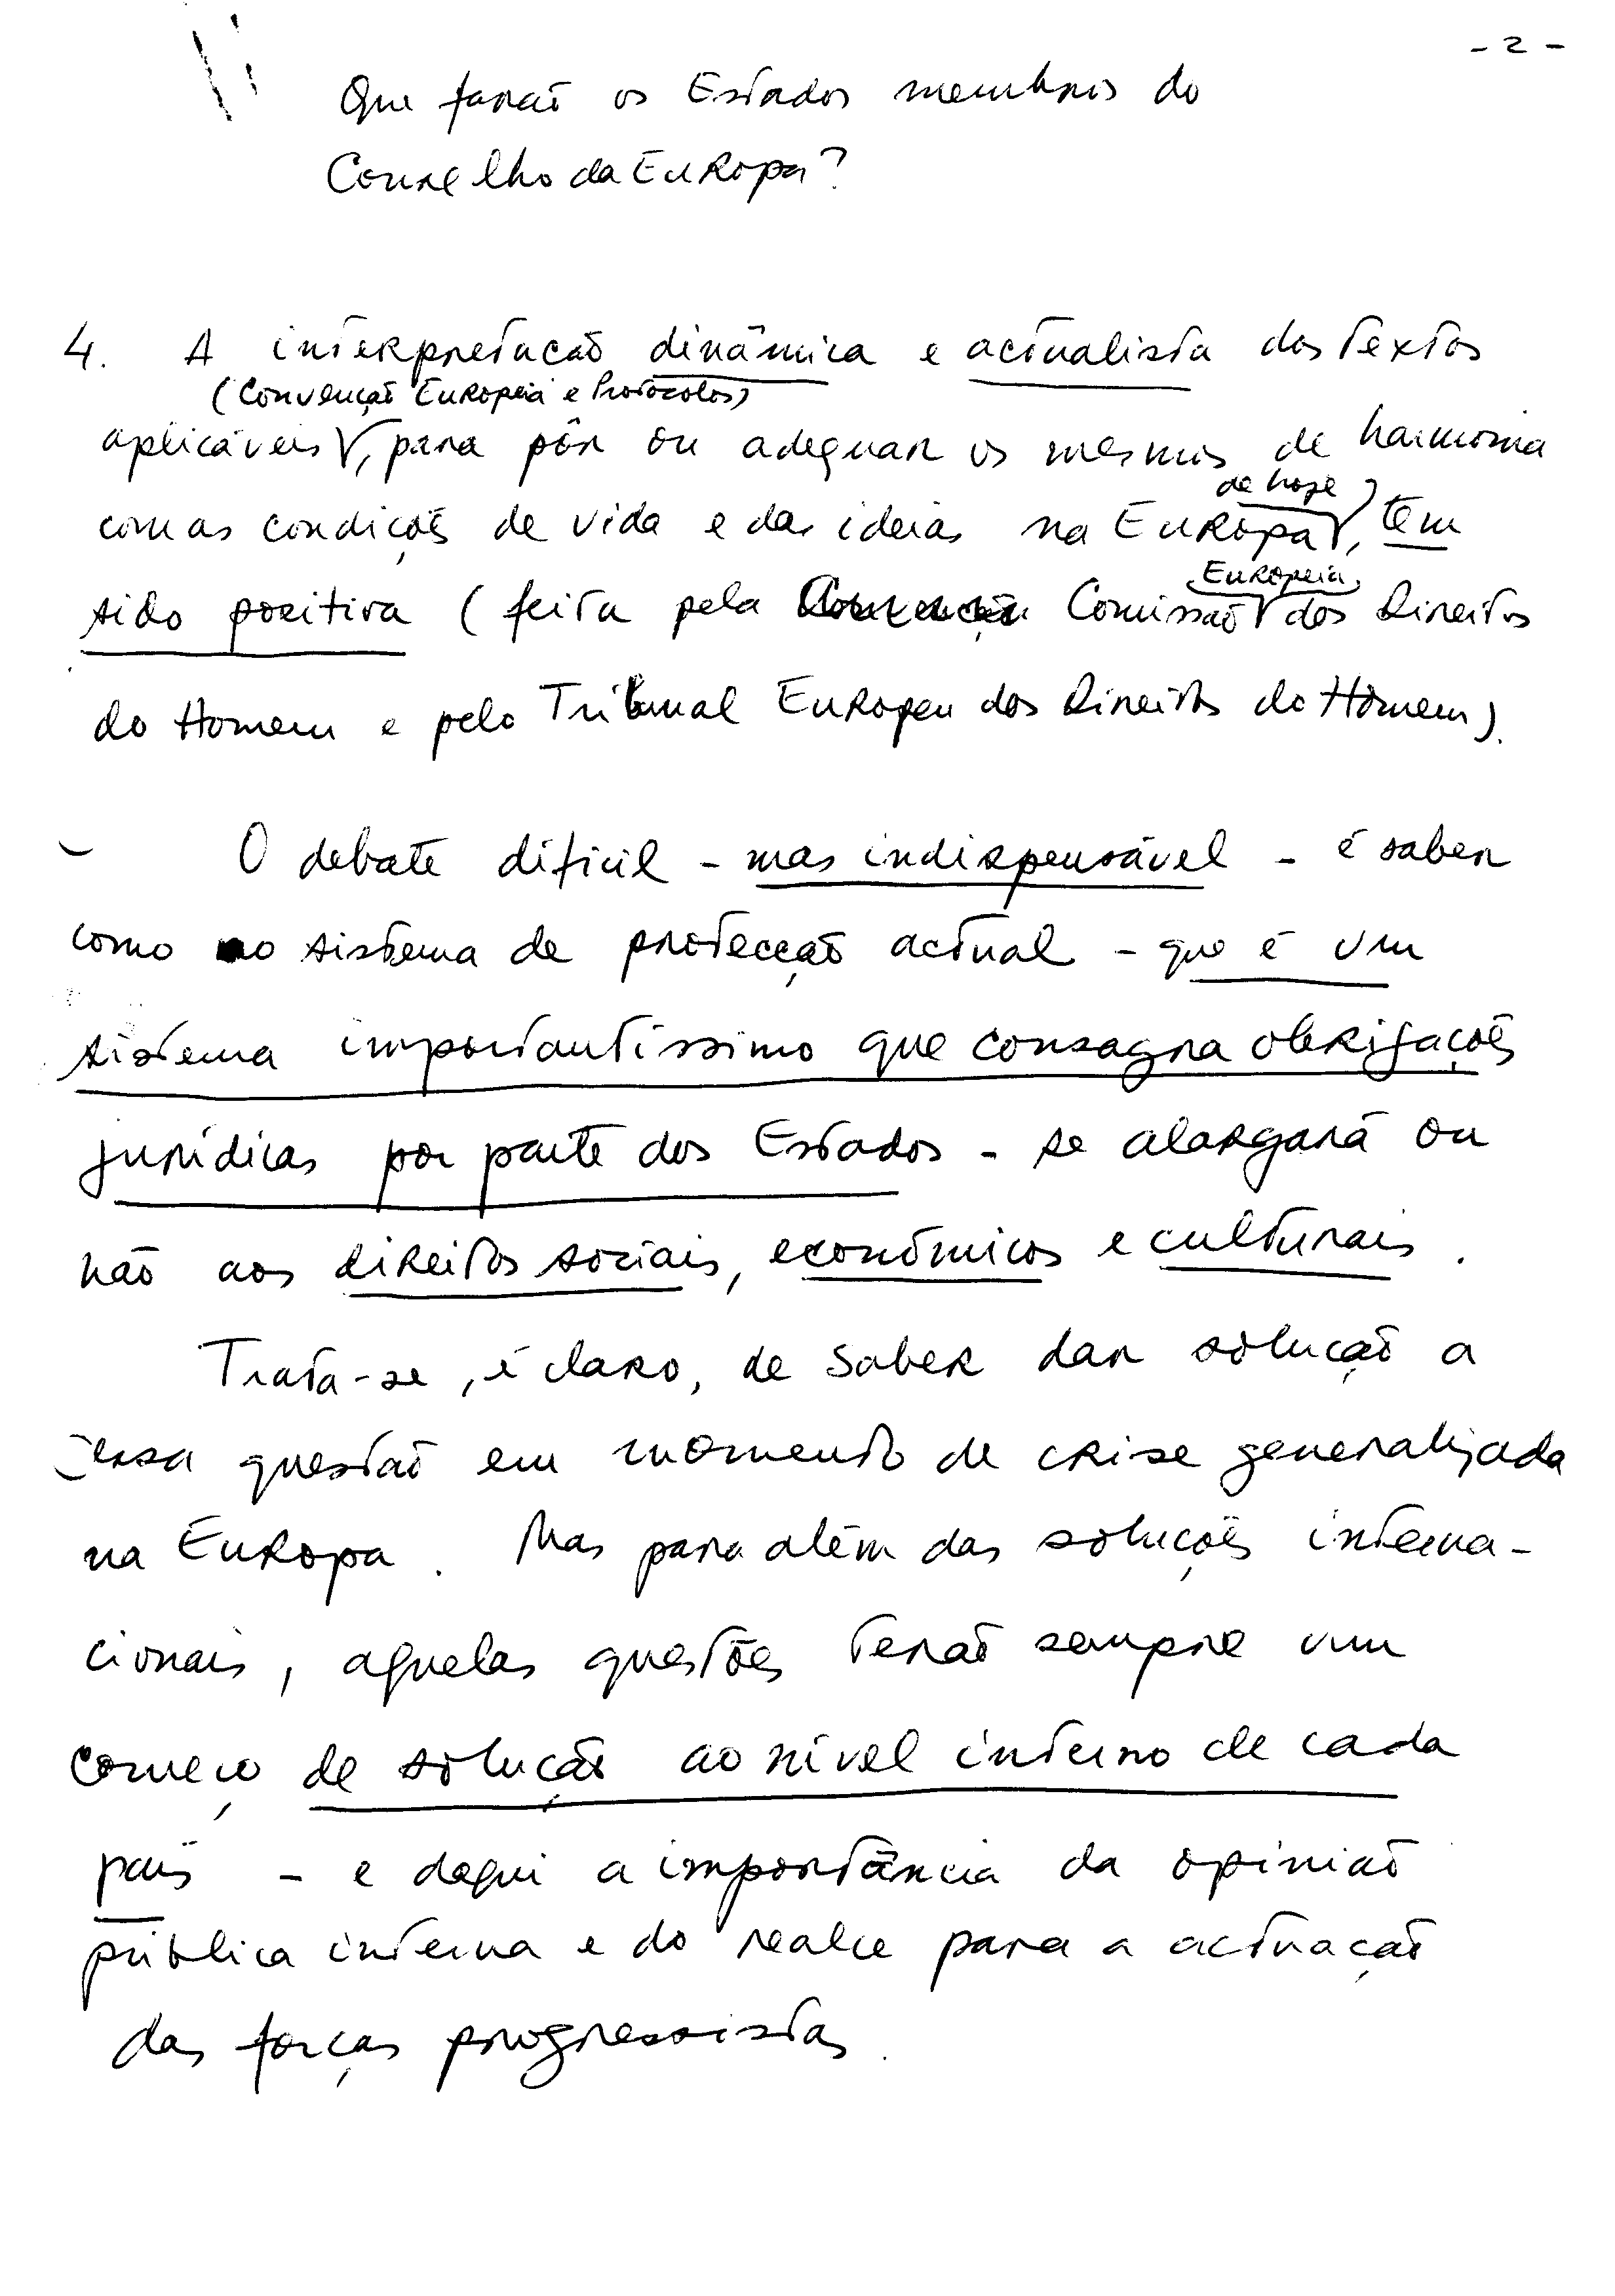 - 2 -
Que farão os Estados membros do
Conselho da Europa?
4. A interpretação dinâmica e actualista dos textos
(Convenção Europeia e Protocolos)
aplicáveis, para pôr ou adequar os mesmos de harmonia
de hoje
com as condições de vida e das ideias na Europa, tem
Europeia
sido positiva (feita pela Comissão dos Direitos
do Homem e pelo Tribunal Europeu dos Direitos do Homem).
O debate difícil - mas indispensável - é saber
como o sistema de protecção actual - que é um
sistema importantíssimo que consagra obrigações
jurídicas por parte dos Estados - se alargará ou
não aos direitos sociais, económicos e culturais.
Trata-se, é claro, de saber dar solução a
essa questão em momento de crise generalizada
na Europa. Mas para além das soluções interna-
cionais, aquelas questões terão sempre um
começo de solução ao nível interno de cada
país - e daqui a importância da opinião
pública interna e do realce para a actuação
das forças progressistas.